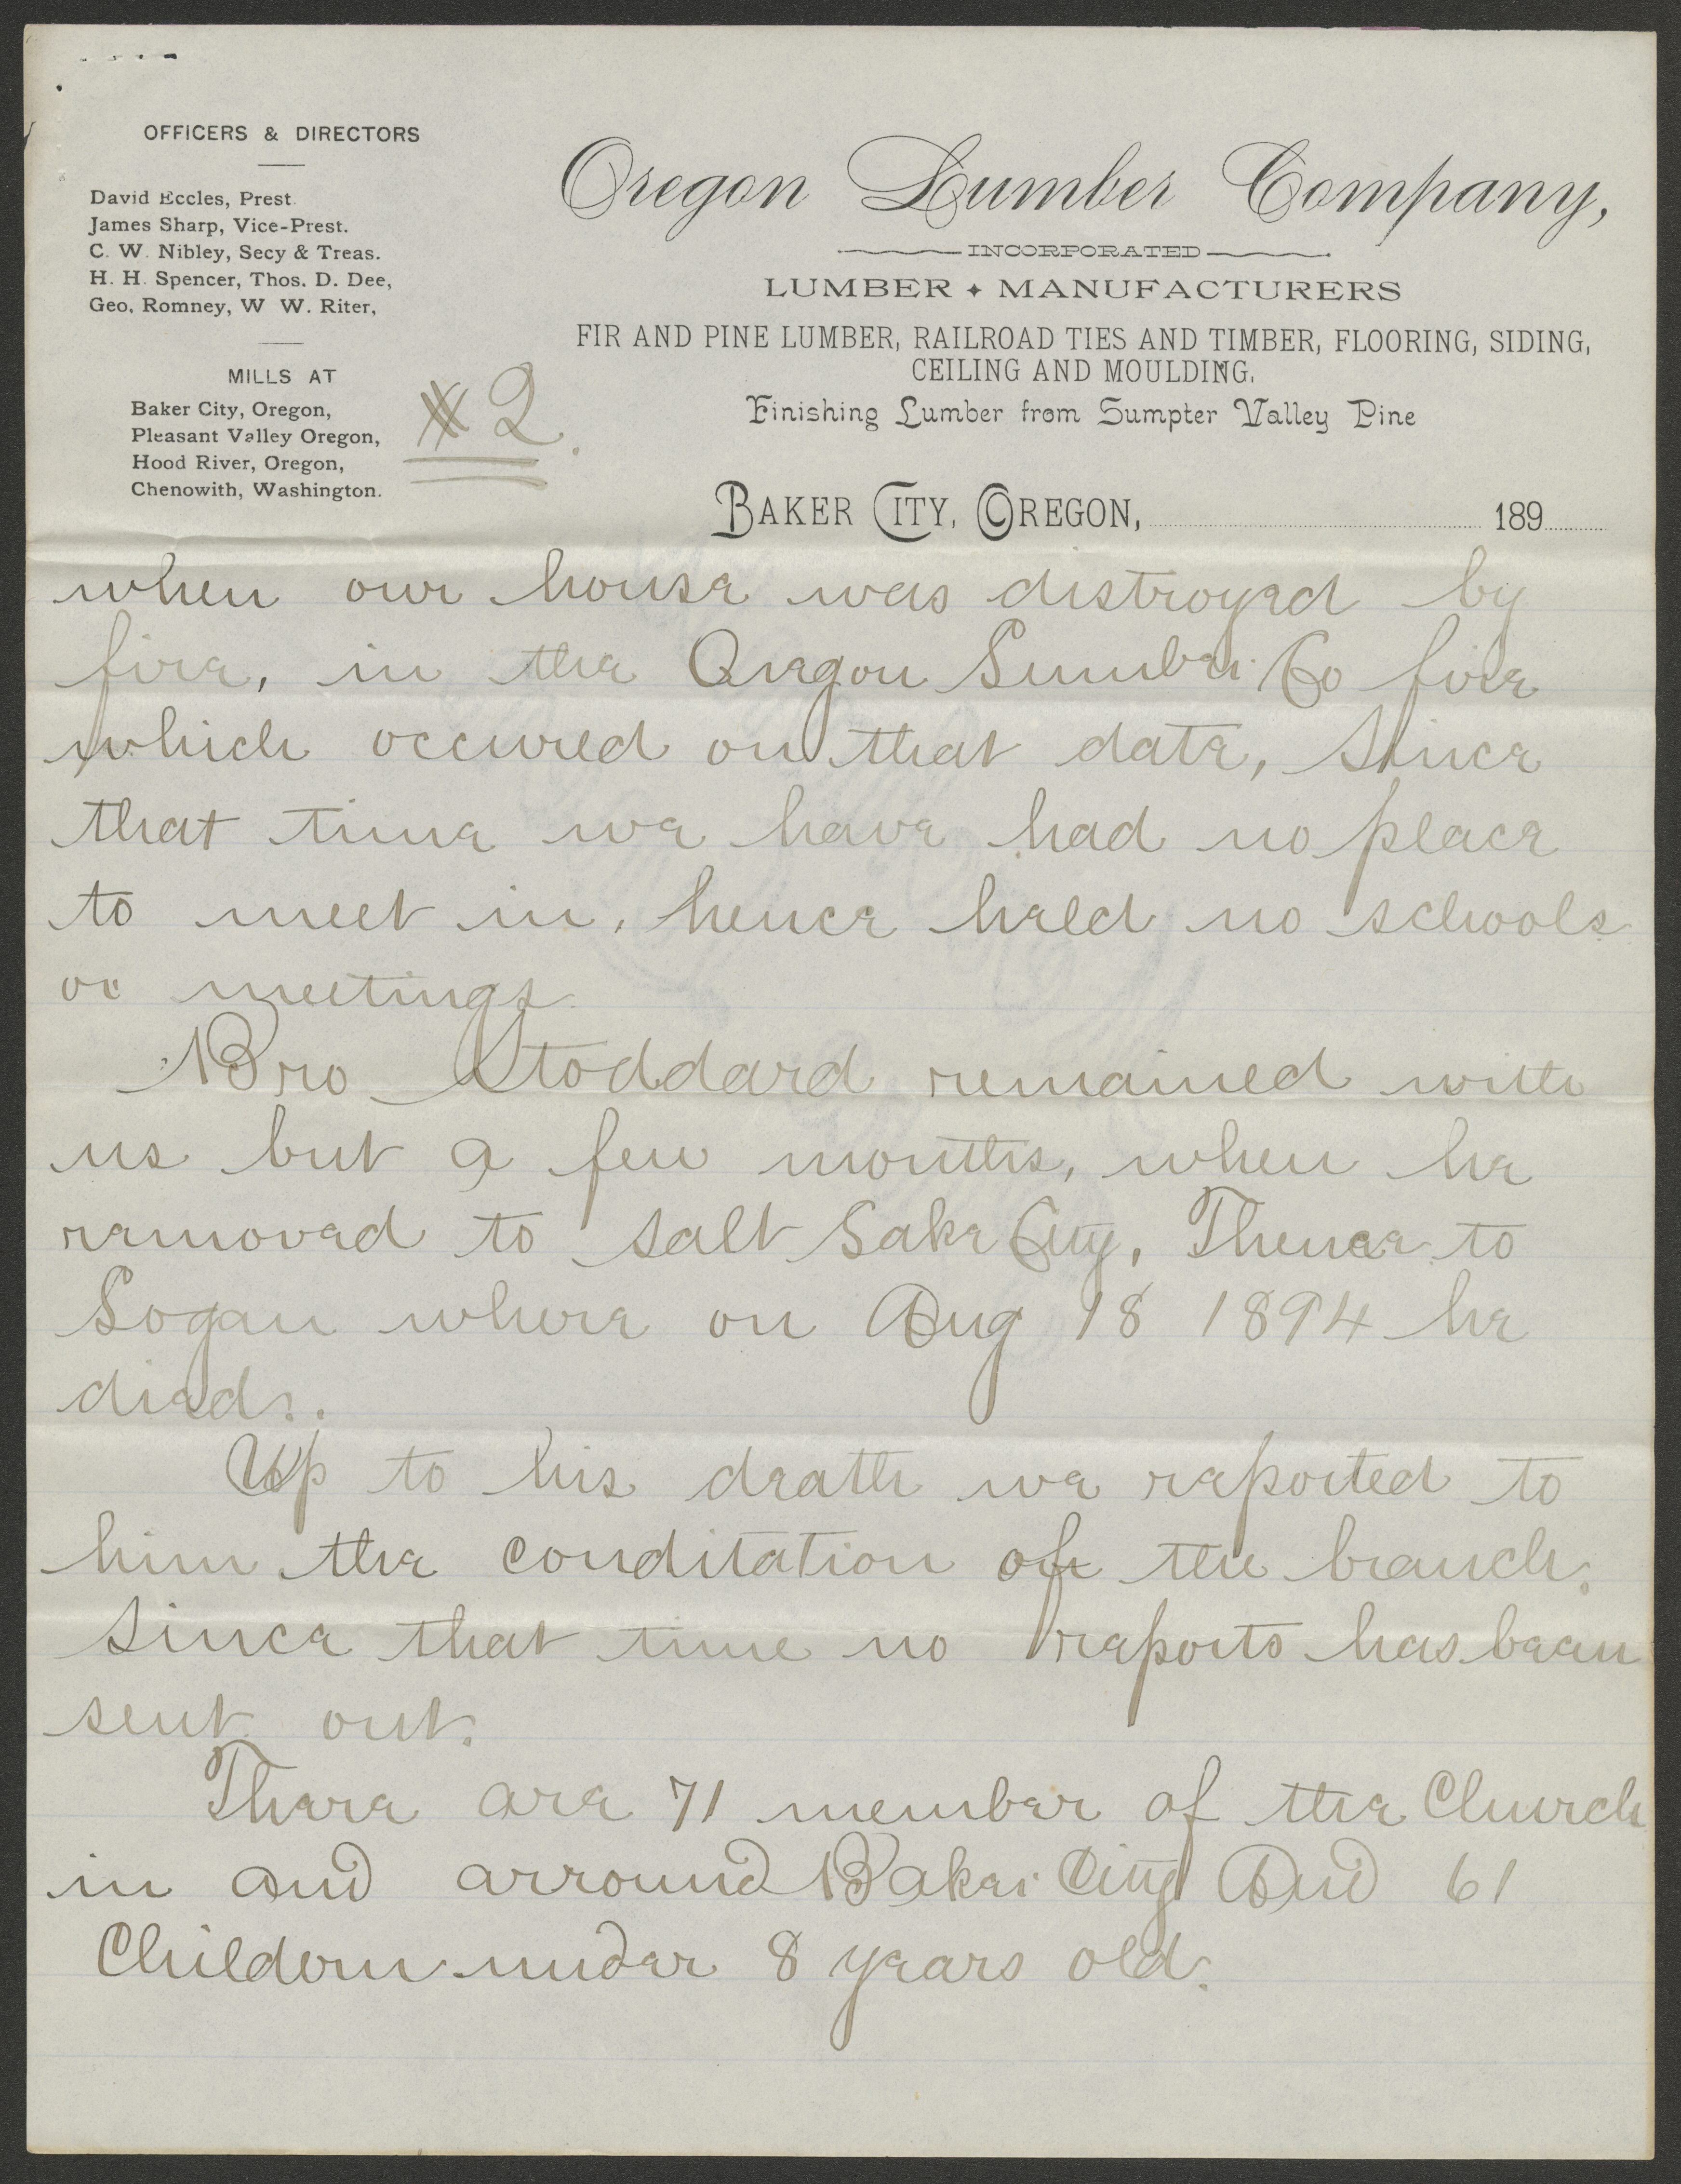 OFFICERS & DIRECTORS
David Eccles, Prest.
James Sharp, Vice-Prest.
C. W. Nibley, Secy & Treas.
H. H. Spencer, Thos. D. Dee,
Geo, Romney, W W. Riter,
MILLS AT
Baker City, Oregon,
Pleasant Valley Oregon,
Hood River, Oregon,
Chenowith, Washington.
#2.
Oregon Lumber Company,
INCORPORATED
LUMBER ✦ MANUFACTURERS
FIR AND PINE LUMBER, RAILROAD TIES AND TIMBER, FLOORING, SIDING,
CEILING AND MOULDING.
Finishing Lumber from Sumpter Valley Pine
BAKER CITY, OREGON, 189
when our house was distroyed by
fire, in the Oregon Lumber Co fire
which occured on that date, Since
that time we have had no place
to meet in, hence held no schools
or meetings.
Bro Stoddard remained with
us but a few months, when he
removed to Salt Lake City, Thence to
Logan where on Aug 18 1894 he
died.
Up to his death we reported to
him the conditation of the branch.
Since that time no reports has been
sent out.
There are 71 member of the Church
in and arround Baker City And 61
Childern under 8 years old.